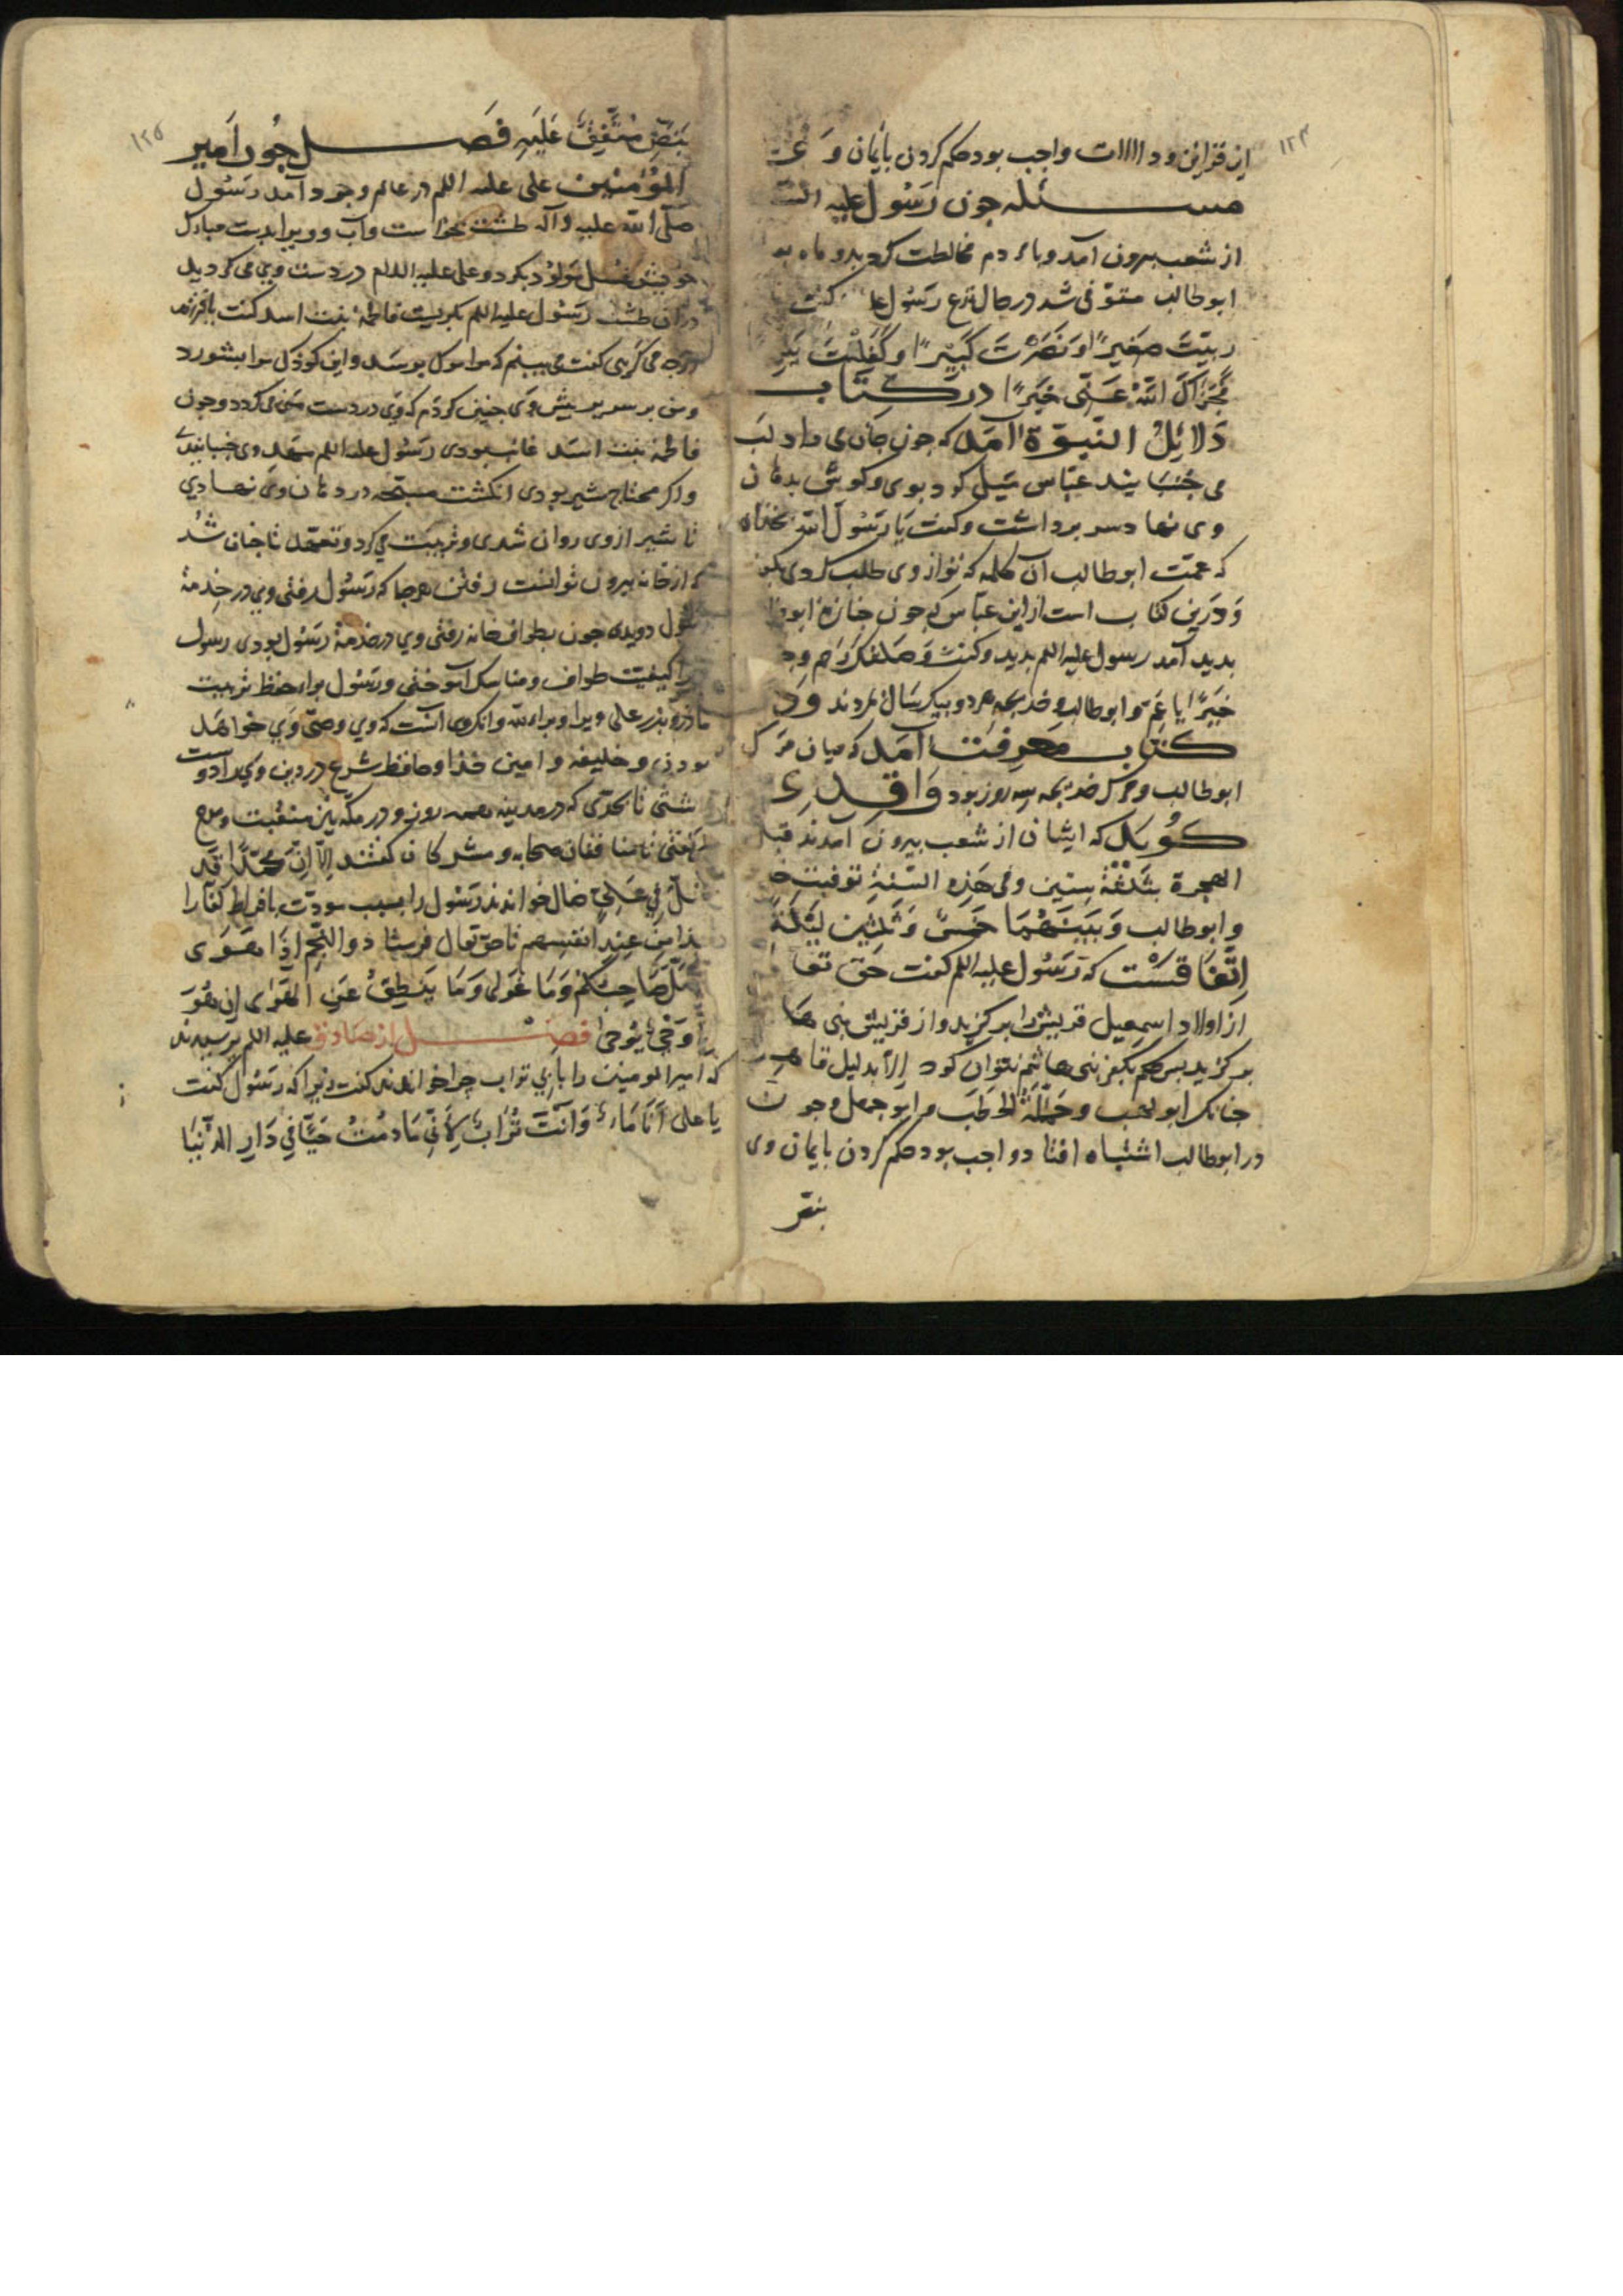 ۱۲۴
از قراین ود واجب بود حکم کردن بایمان و
مسئله جون رسول علیه
از شعب بیرون آمد وبا مردم مخالطت کرد بدو ماه
ابوطالب متوفی شد در حال نزع رسول کفت
ربیّت صغیرًا ونصرت کبیرًا وکفلت
فجزاک الله عنّی خیرًا در کتاب
دلائل النبوّة آمد که جون جان می داد لب
می جنبانید عبّاس میل کرد بوی وکوش بدهان
وی نهاد سر برداشت وکفت یا رسول الله بخدای
که عمّت ابوطالب آن کلمه که تو از وی طلب کردی
ودرین کتاب است از ابن عباس که جون جنازه
بدید آمد رسول علیه اللم بدید وکفت وصلتک رحم
خیرًا یا عم وابوطالب وخدیجه هردو بیکسال بمردند ودر
کتاب معرفت آمد که میان مرک
ابوطالب ومرک خدیجه سه روز بود واقدی
کوید که ایشان از شعب بیرون آمدند قبل
الهجرة بثلثة سنین وفی هذه السّنة توفیت
وابوطالب وبینهما خمس وثلثین لیلة
اتفاقست که رسول علیه اللم کفت حق
از اولاد اسمعیل قریش را برکزید واز قریش بنی
برکزید بس حکم بکفر بنی هاشم نتوان کرد الّا بدلیل قاهر
جنانک ابو لهب وحمّالة الحطب وابو جهل وجون
در ابوطالب اشتباه افتاد واجب بود حکم کردن بایمان وی
بنص
۱۲۵
بنصّ متّفق علیه فصل جون امیر
المؤمنین علی علیه اللم در عالم وجود آمد رسول
صلّی الله علیه وآله طشت بخواست وآب وویرا بدست مبارک
خویش غسل مولود بکرد وعلی علیه اللام در دست وی می کردید
دران طشت رسول علیه اللم بکریست فاطمه بنت اسد کفت
می کریی کفت می بینم که واین کودک مرا بشورد
ومن بر سریریش وی جنین کردم که وی در دست می کردد وجون
فاطمه بنت اسد غایب بودی رسول علیه اللم مهد وی جنبانیدی
واکر محتاج شیر بودی انکشت مسبّحه در دهان وی نهادی
تا شیر ازوی روان شدی وتربیت می کرد وتعهّد تا جنان شد
که ازخانه بیرون توانست رفتن هرجا که رسول رفتی وی در خدمة
رسول دویدی جون بطواف خانه رفتی وی در خدمة رسول بودی رسول
ویرا کیفیت طواف ومناسک آموختی ورسول براء حفظ تربیت
مادر وبدر علی ویرا وبراء لله وانک می دانست که وی وصیّ وی خواهد
بودن وخلیفه وامین خدا وحافظ شرع در دین وی اورا دوست
داشتی تا بحدّی که در مدینه همه روز ودر مکّه بین منقبت ومدح
کفتی تا منافقان صحابه ومشرکان کفتند الّا انّ محمّدًا قد
ضلّ فی علیّ ضال خواندند رسول را بسبب مودّت بافراط کفّار
من عند انفسهم تا حق تعال فرستاد والنّجم اذا هوی
ما ضلّ صاحبکم وما غوی وما ینطق عن الهوی ان هو
الّا وحی یوحی فصل از صادق علیه اللم برسیدند
که امیر المومنین را بابی تراب جرا خواندند کفت زیرا که رسول کفت
یا علی انا ماء وانت تراب لانّی ما دمت حیًّا فی دار الدّنیا